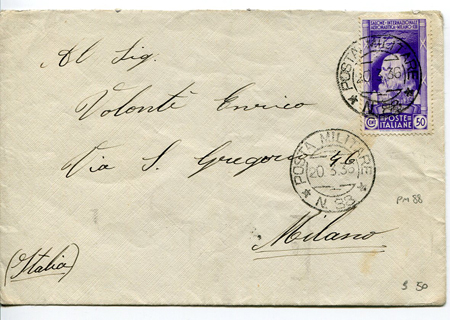 SALONE INTERNAZIONALE
AERONAUTICA - MILANO - XIII
POSTE
ITALIANE
50
POSTA MILITARE
20 36
N. 88
Al Sig.
Volontè Enrico
Via S. Gregorio 46
POSTA MILITARE
20.3.36
N. 88
PM 88
Milano
(Italia)
$ 50